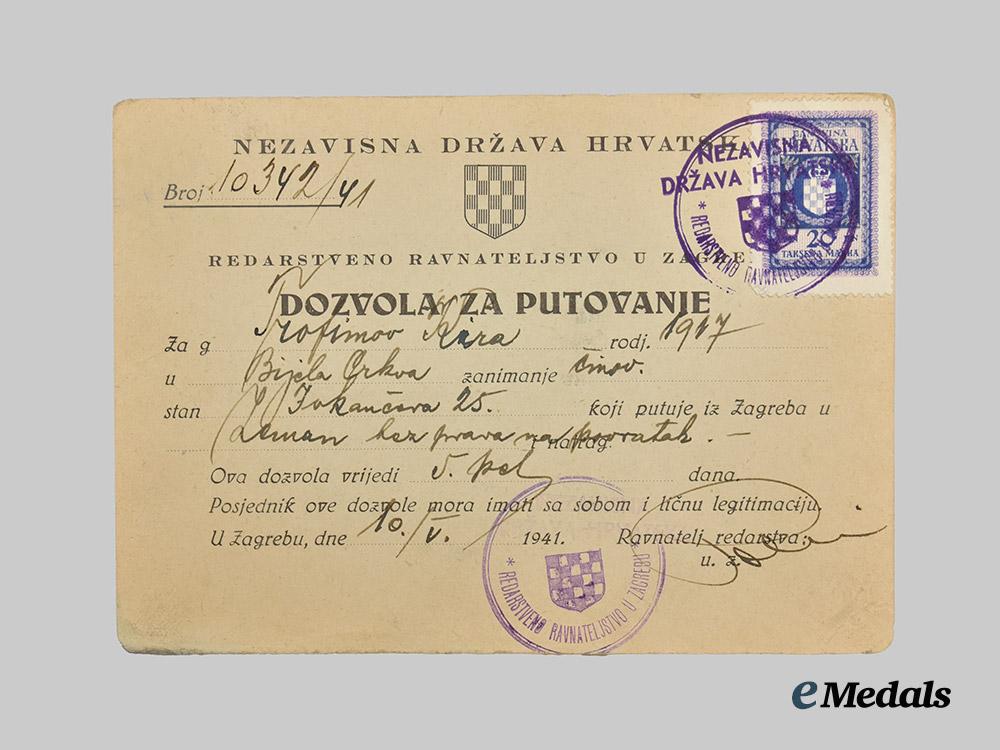 NEZAVISNA DRŽAVA HRVATSK
Broj 10342/41
REDARSTVENO RAVNATELJSTVO U ZAGRE
DOZVOLA ZA PUTOVANJE
Za g Trofimov Kira rodj. 1917
u Bijela Crkva zanimanje činov.
stan 25. koji putuje iz Zagreba u
Zemun bez prava na povratak. — i natrag.
Ova dozvola vrijedi 5. pet dana.
Posjednik ove dozvole mora imati sa sobom i ličnu legitimaciju.
U Zagrebu, dne 10./V. 1941. Ravnatelj redarstva:
u. z.
NEZAVISNA
DRŽAVA HRVATSK
* REDARSTVENO RAVNATELJSTVO
20
TAKSENA MARKA
* REDARSTVENO RAVNATELJSTVO U ZAGREBU *
eMedals